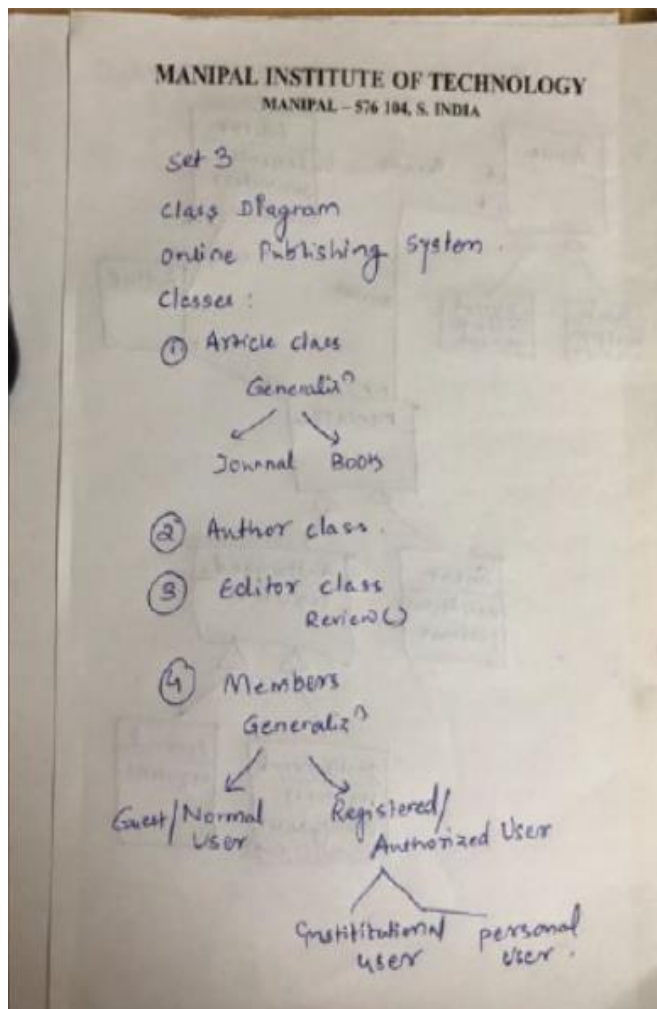 MANIPAL INSTITUTE OF TECHNOLOGY
MANIPAL – 576 104, S. INDIA
Set 3
Class Diagram
Online Publishing System.
Classes :
① Article class
Generalizⁿ
Journal Books
② Author class.
③ Editor class
Review()
④ Members
Generalizⁿ
Guest/Normal User
Registered/Authorized User
Institutional user
personal user.